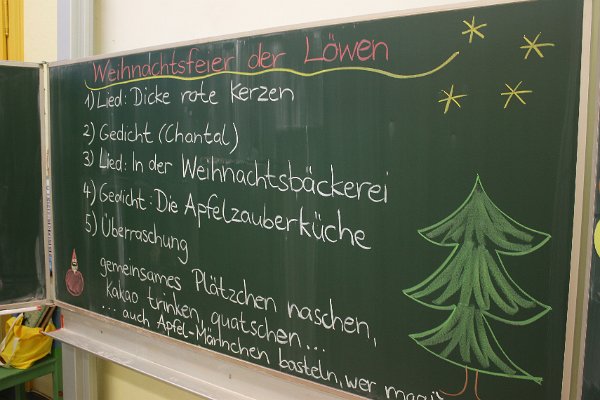 Weihnachtsfeier der Löwen
1) Lied: Dicke rote Kerzen
2) Gedicht (Chantal)
3) Lied: In der Weihnachtsbäckerei
4) Gedicht: Die Apfelzauberküche
5) Überraschung
gemeinsames Plätzchen naschen,
Kakao trinken, quatschen...
... auch Apfel-Männchen basteln, wer mag!